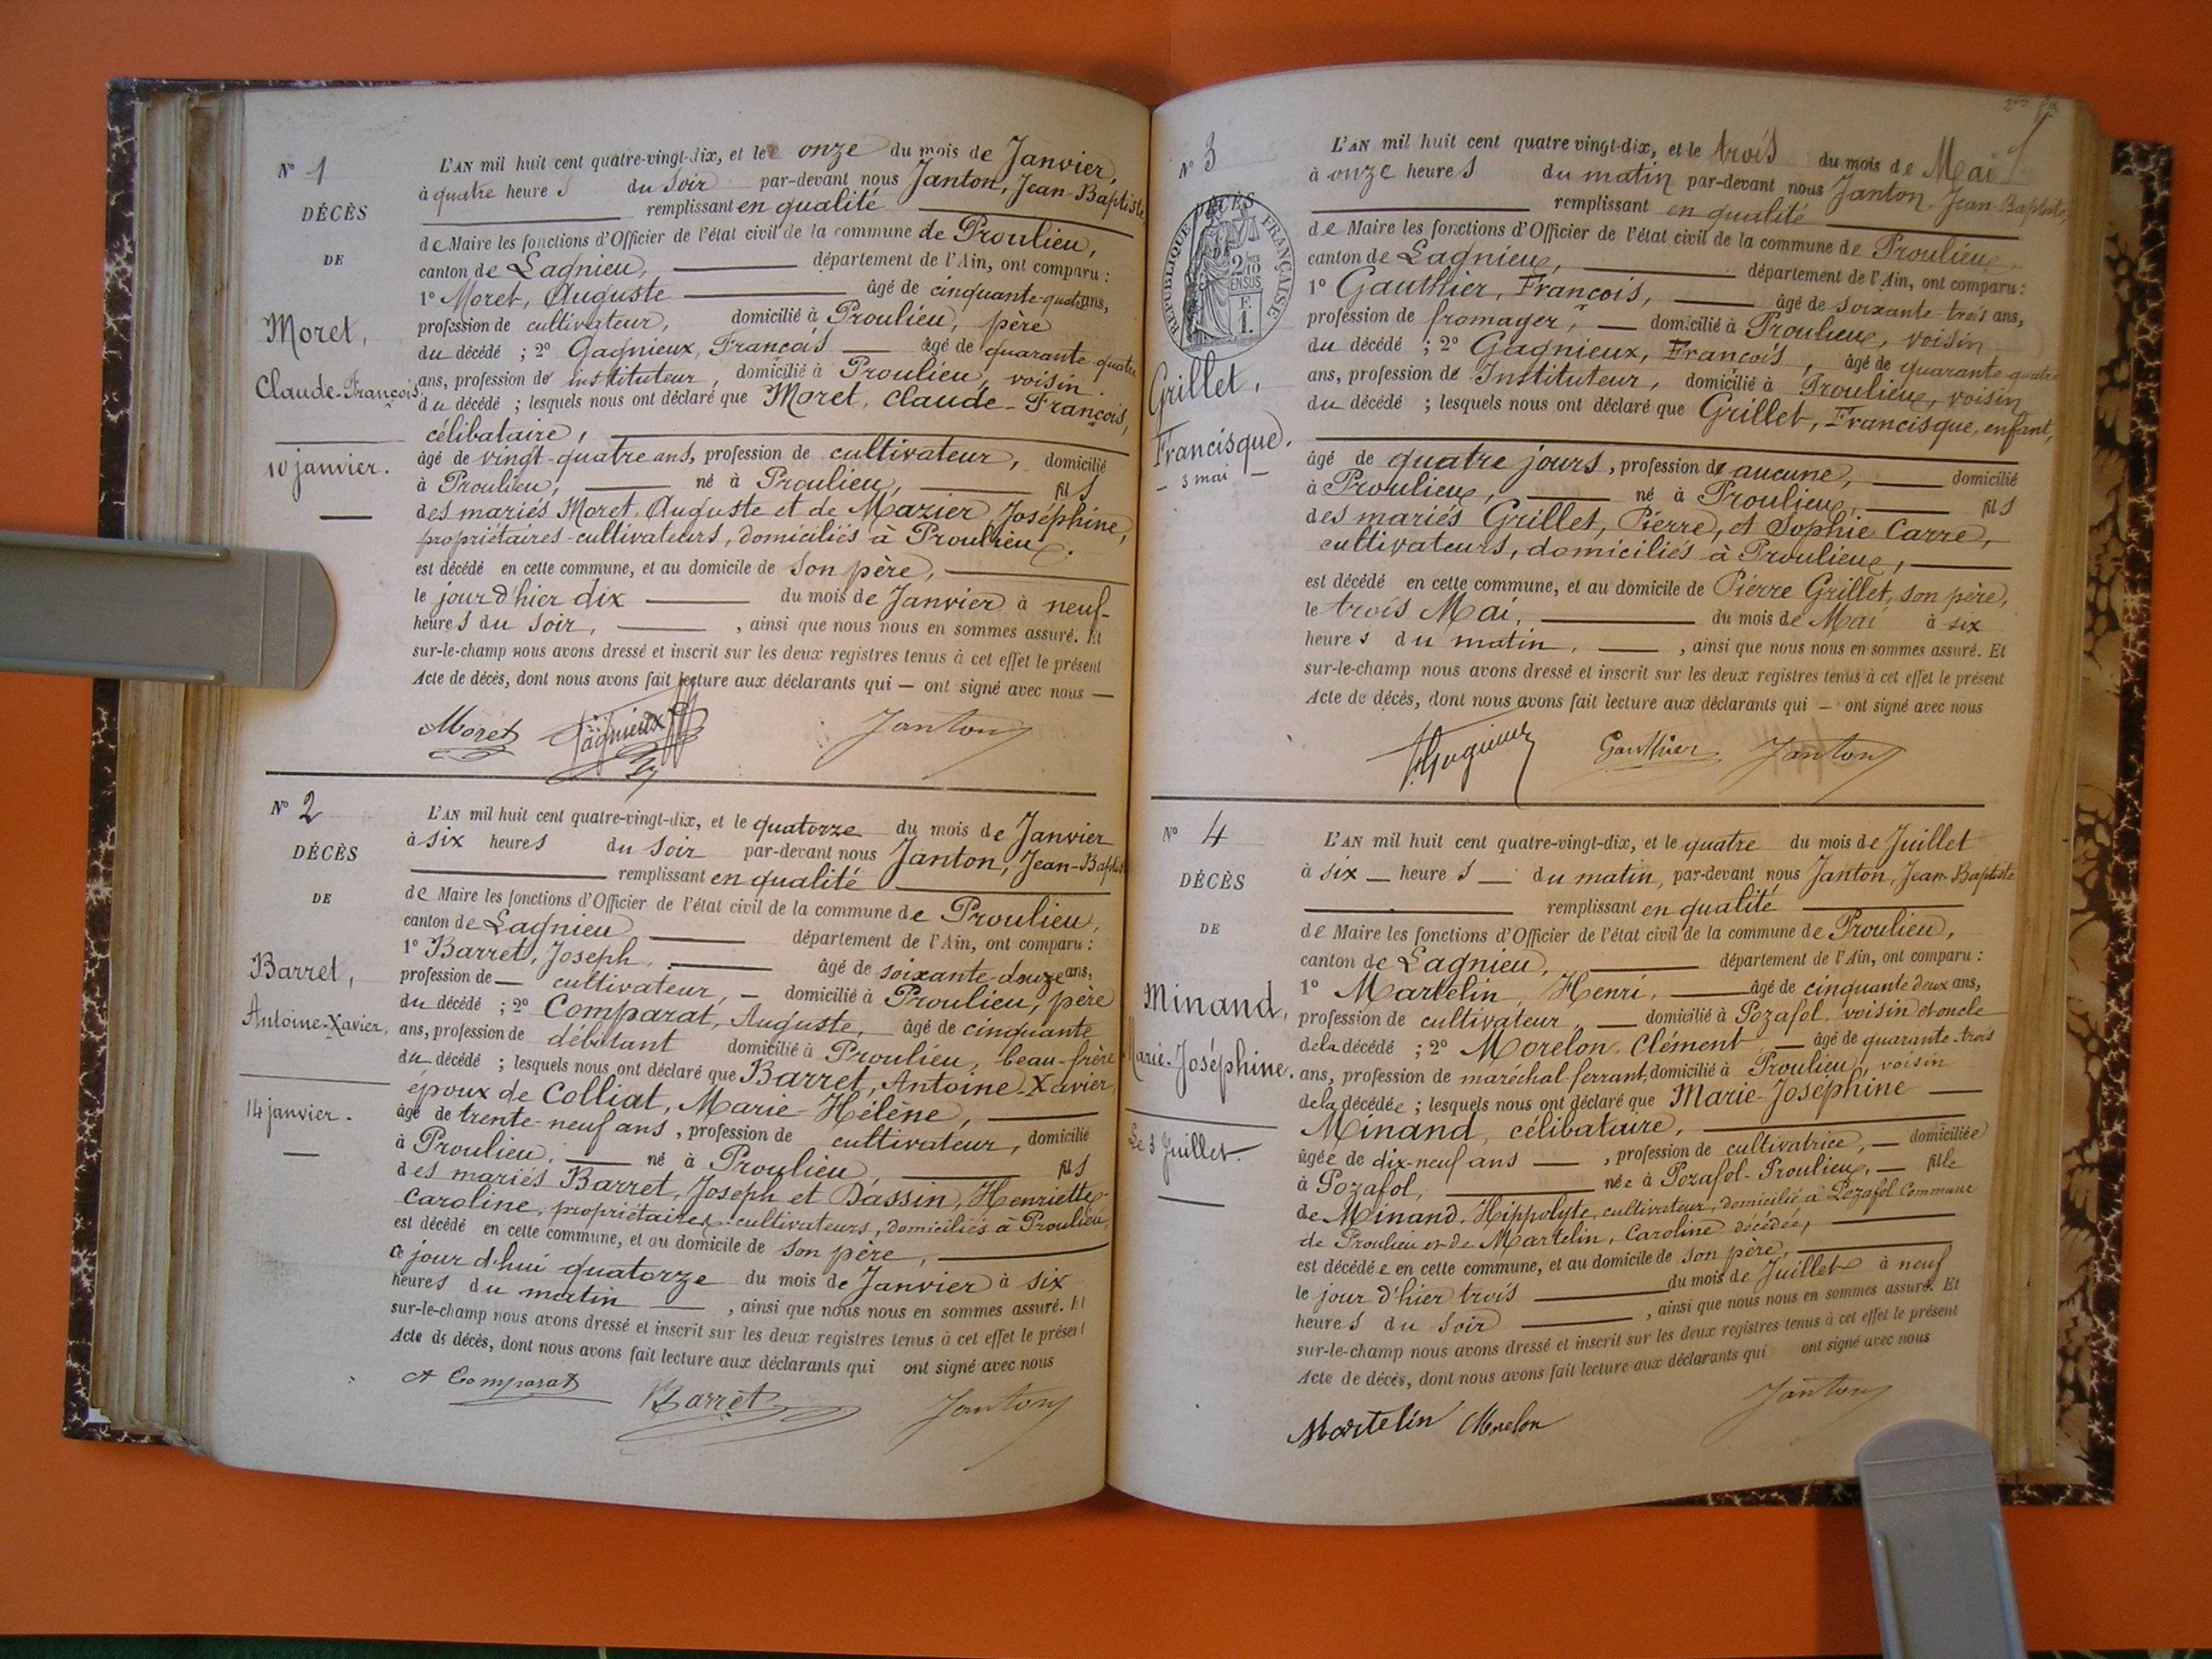 N° 1
DÉCÈS
DE
Moret,
Claude-François.
10 janvier.
L'AN mil huit cent quatre-vingt-dix, et le onze du mois de Janvier,
à quatre heures du soir par-devant nous Janton, Jean-Baptiste
remplissant en qualité
de Maire les fonctions d'Officier de l'état civil de la commune de Proulieu,
canton de Lagnieu, département de l'Ain, ont comparu :
1° Moret, Auguste âgé de cinquante-quatre ans,
profession de cultivateur, domicilié à Proulieu, père
du décédé ; 2° Gagnieux, François âgé de quarante-quatre
ans, profession de instituteur, domicilié à Proulieu, voisin
du décédé ; lesquels nous ont déclaré que Moret, Claude-François,
célibataire,
âgé de vingt-quatre ans, profession de cultivateur, domicilié
à Proulieu, né à Proulieu, fils
des mariés Moret, Auguste et de Mazier Joséphine,
propriétaires-cultivateurs, domiciliés à Proulieu.
est décédé en cette commune, et au domicile de son père,
le jour d'hier dix du mois de Janvier à neuf
heures du soir, , ainsi que nous nous en sommes assuré. Et
sur-le-champ nous avons dressé et inscrit sur les deux registres tenus à cet effet le présent
Acte de décès, dont nous avons fait lecture aux déclarants qui — ont signé avec nous —
Moret Gagnieux Janton
N° 2
DÉCÈS
DE
Barret,
Antoine-Xavier,
14 janvier.
L'AN mil huit cent quatre-vingt-dix, et le quatorze du mois de Janvier
à six heures du soir par-devant nous Janton, Jean-Baptiste
remplissant en qualité
de Maire les fonctions d'Officier de l'état civil de la commune de Proulieu,
canton de Lagnieu département de l'Ain, ont comparu :
1° Barret, Joseph, âgé de soixante-douze ans,
profession de — cultivateur, — domicilié à Proulieu, père
du décédé ; 2° Comparat, Auguste, âgé de cinquante
ans, profession de débitant domicilié à Proulieu, beau-frère
du décédé ; lesquels nous ont déclaré que Barret, Antoine-Xavier
époux de Colliat, Marie-Hélène,
âgé de trente-neuf ans, profession de cultivateur, domicilié
à Proulieu, né à Proulieu, fils
des mariés Barret, Joseph et Dassin, Henriette-
Caroline, propriétaires-cultivateurs, domiciliés à Proulieu,
est décédé en cette commune, et au domicile de son père,
ce jour d'hui quatorze du mois de Janvier à six
heures du matin , ainsi que nous nous en sommes assuré. Et
sur-le-champ nous avons dressé et inscrit sur les deux registres tenus à cet effet le présent
Acte de décès, dont nous avons fait lecture aux déclarants qui ont signé avec nous
A Comparat Barret Janton
N° 3
RÉPUBLIQUE FRANÇAISE
DÉCÈS
2/10 EN SUS
Grillet,
Francisque.
— 3 mai —
L'AN mil huit cent quatre vingt-dix, et le trois du mois de Mai
à onze heures du matin par-devant nous Janton, Jean-Baptiste,
remplissant en qualité
de Maire les fonctions d'Officier de l'état civil de la commune de Proulieu
canton de Lagnieu, département de l'Ain, ont comparu :
1° Gauthier, François, âgé de soixante-trois ans,
profession de fromager, — domicilié à Proulieu, voisin
du décédé ; 2° Gagnieux, François, âgé de quarante-quatre
ans, profession de Instituteur, domicilié à Proulieu, voisin
du décédé ; lesquels nous ont déclaré que Grillet, Francisque, enfant,
âgé de quatre jours, profession de aucune, domicilié
à Proulieu, né à Proulieu, fils
des mariés Grillet, Pierre, et Sophie Carre,
cultivateurs, domiciliés à Proulieu,
est décédé en cette commune, et au domicile de Pierre Grillet, son père,
le trois Mai, du mois de Mai à six
heures du matin, , ainsi que nous nous en sommes assuré. Et
sur-le-champ nous avons dressé et inscrit sur les deux registres tenus à cet effet le présent
Acte de décès, dont nous avons fait lecture aux déclarants qui — ont signé avec nous
Gagnieux Gauthier Janton
N° 4
DÉCÈS
DE
Minand,
Marie-Joséphine.
Le 3 Juillet.
L'AN mil huit cent quatre-vingt-dix, et le quatre du mois de Juillet
à six — heures — du matin, par-devant nous Janton, Jean-Baptiste
remplissant en qualité
de Maire les fonctions d'Officier de l'état civil de la commune de Proulieu,
canton de Lagnieu, département de l'Ain, ont comparu :
1° Martelin, Henri, âgé de cinquante deux ans,
profession de cultivateur, — domicilié à Pozafol, voisin et oncle
de la décédé ; 2° Morelon, Clément — âgé de quarante-trois
ans, profession de maréchal-ferrant, domicilié à Proulieu, voisin
de la décédée ; lesquels nous ont déclaré que Marie-Joséphine
Minand, célibataire,
âgée de dix-neuf ans — , profession de cultivatrice, — domiciliée
à Pozafol, née à Pozafol-Proulieu, — fille
de Minand, Hippolyte, cultivateur, domicilié à Pozafol Commune
de Proulieu et de Martelin, Caroline décédée,
est décédée en cette commune, et au domicile de son père,
le jour d'hier trois du mois de Juillet à neuf
heures du soir , ainsi que nous nous en sommes assuré. Et
sur-le-champ nous avons dressé et inscrit sur les deux registres tenus à cet effet le présent
Acte de décès, dont nous avons fait lecture aux déclarants qui ont signé avec nous
Martelin Morelon Janton